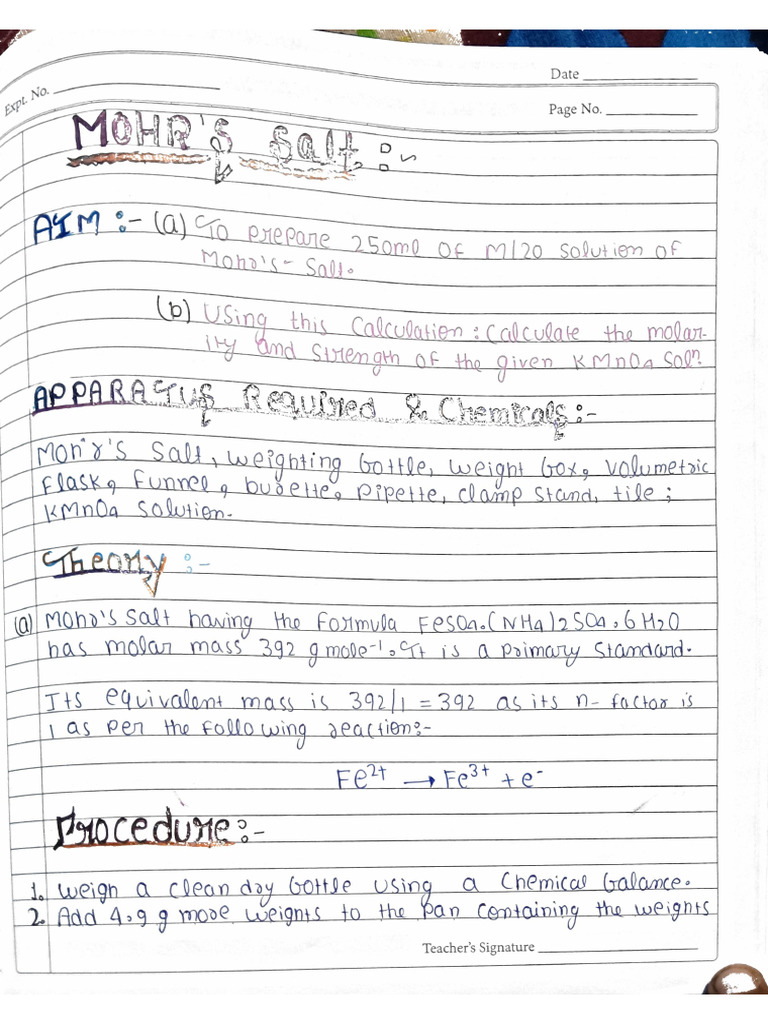 Date
Expt. No.
Page No.
MOHR'S Salt :-
AIM :- (a) To prepare 250ml OF M/20 solution of
Mohr's-Salt.
(b) Using this Calculation : Calculate the molar-
ity and strength of the given KMnO4 Solⁿ.
APPARATUS Required & Chemicals:-
Mohr's Salt, weighting bottle, weight box, volumetric
Flask, Funnel, burette, pipette, clamp stand, tile;
KMnO4 solution.
Theory :-
(a) Mohr's salt having the formula FeSO4.(NH4)2SO4.6H2O
has molar mass 392 g mole⁻¹. It is a primary standard.
Its equivalent mass is 392/1 = 392 as its n-factor is
1 as per the following reaction:-
Fe²⁺ → Fe³⁺ + e⁻
Procedure:-
1. Weigh a clean dry bottle using a Chemical balance.
2. Add 4.9 g more weights to the pan containing the weights
Teacher's Signature